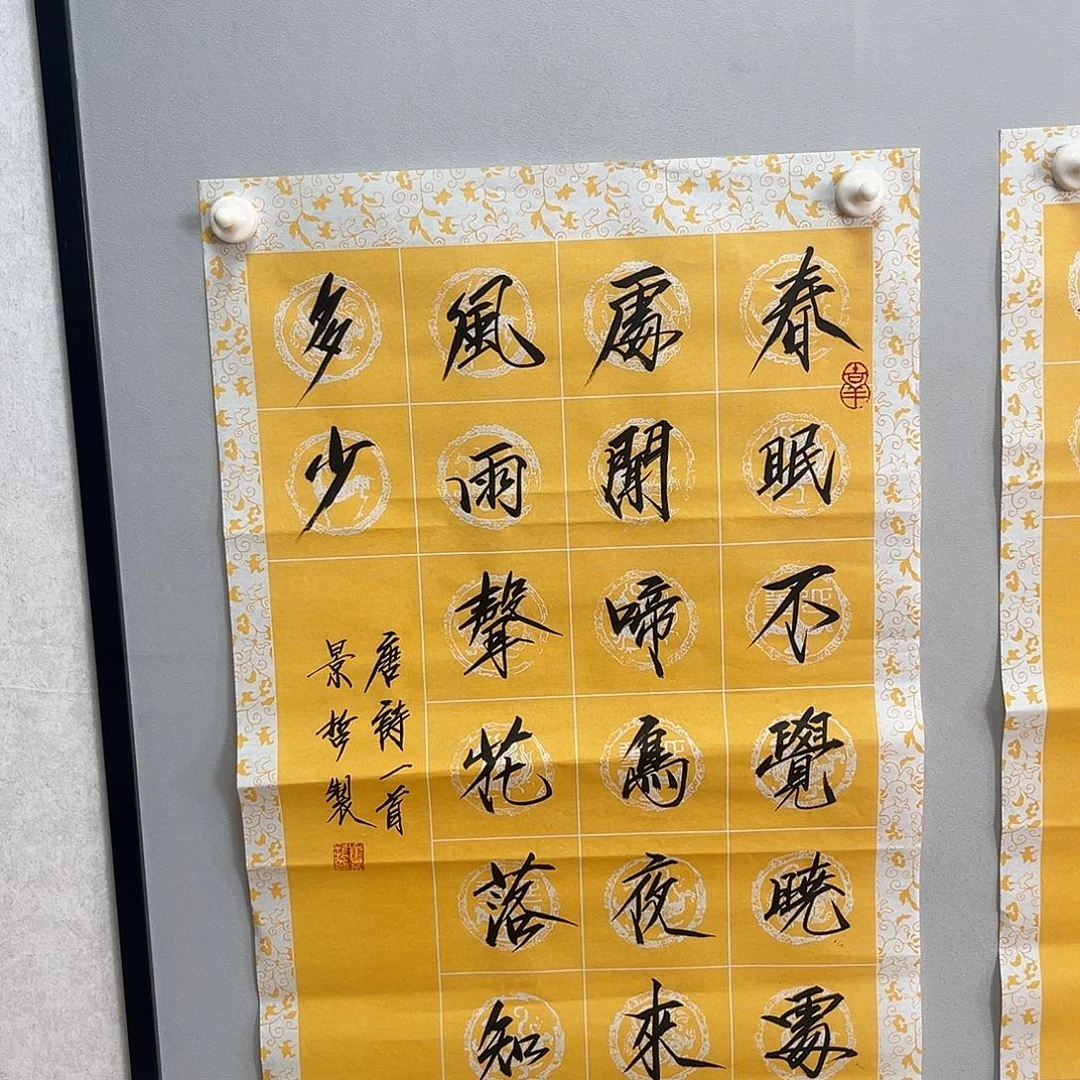 春眠不覺曉處
處聞啼鳥夜來
風雨聲花落知
多少
唐詩一首
景哲製